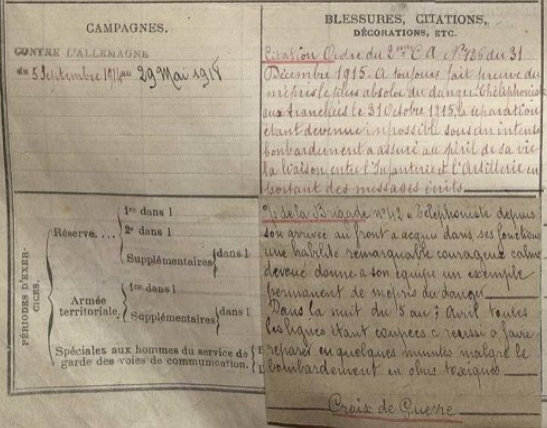 CAMPAGNES.
CONTRE L'ALLEMAGNE
du 5 Septembre 1914 au 29 Mai 1918
BLESSURES, CITATIONS,
DÉCORATIONS, ETC.
Citation Ordre du 2ème C A N° 126 du 31
Décembre 1915. A toujours fait preuve du
mépris le plus absolu du danger. Téléphoniste
aux tranchées le 31 Octobre 1915, la réparation
étant devenue impossible sous un intense
bombardement a assuré au péril de sa vie
la liaison entre l'Infanterie et l'Artillerie en
portant des messages écrits
de la Brigade n° 42 Téléphoniste depuis
son arrivée au front a acquis dans ses fonctions
une habilité remarquable courageux calme
dévoué donne à son équipe un exemple
permanent de mépris du danger
Dans la nuit du 5 au 7 Avril toutes
les lignes étant coupées a réussi à faire
réparer en quelques minutes malgré le
bombardement en obus toxiques
Croix de Guerre
PÉRIODES D'EXER-
CICES.
Réserve....
1re dans l
2e dans l
Supplémentaires
dans l
Armée
territoriale.
1re dans l
Supplémentaires
dans l
Spéciales aux hommes du service de
garde des voies de communication.